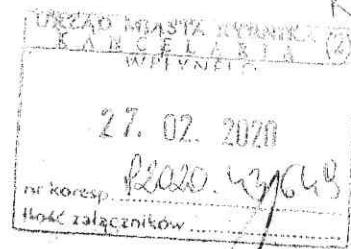 URZĄD MIASTA RYBNIKA
KANCELARIA (2)
WPŁYNĘŁO
27. 02. 2020
nr koresp.
Ilość załączników